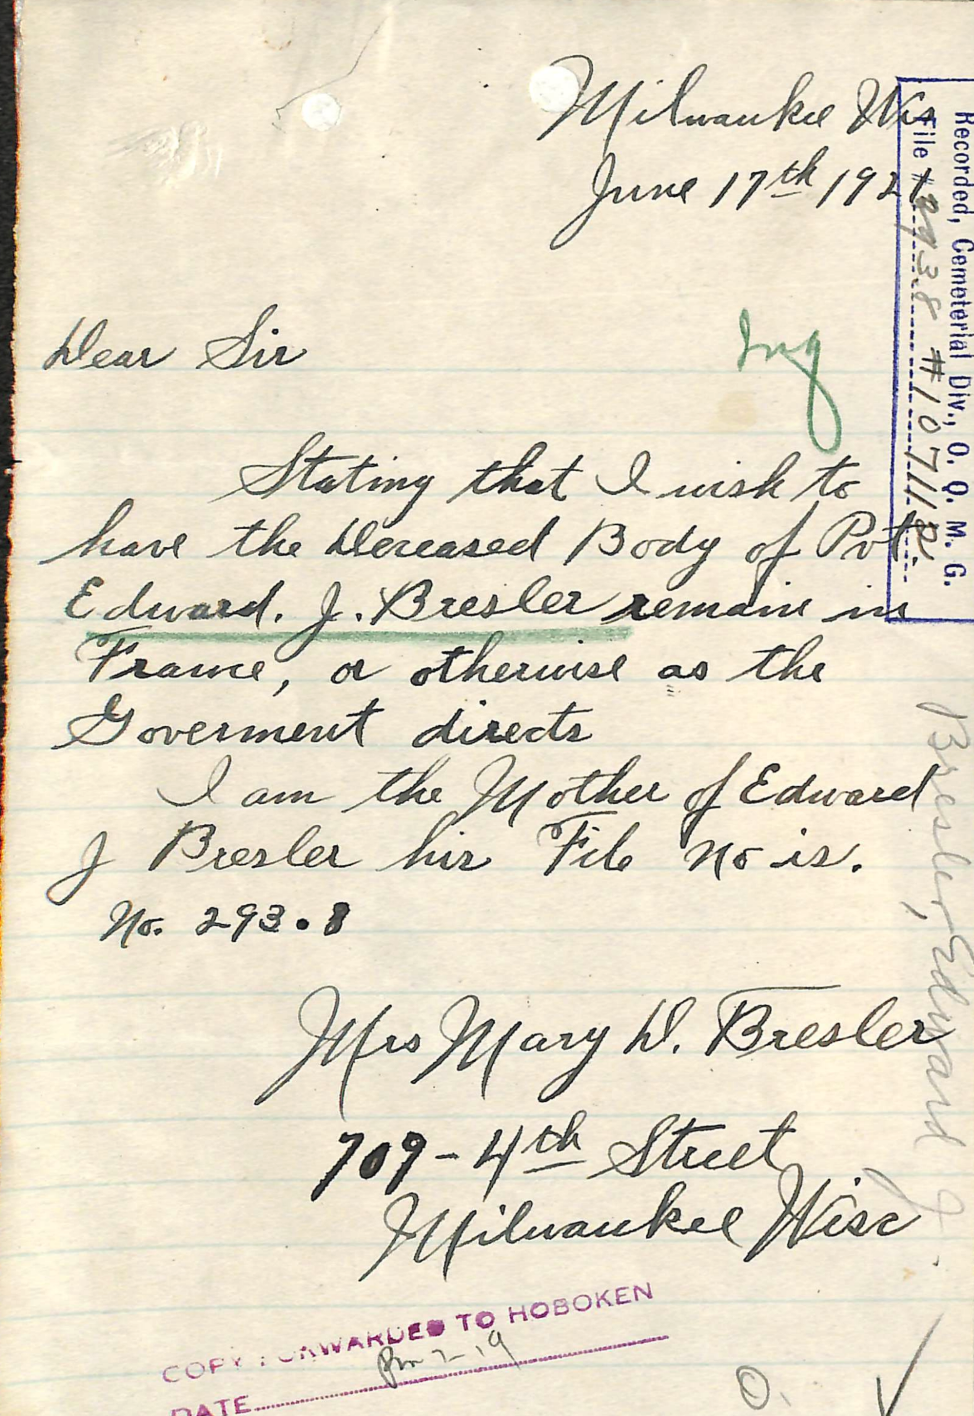 Milwaukee Wis
June 17th 1921
Recorded, Cemeterial Div., O. Q. M. G.
File #
Dear Sir
Stating that I wish to
have the Deceased Body of Pvt.
Edward. J. Bresler remain in
France, or otherwise as the
Goverment directs
I am the Mother of Edward
J Bresler his File No is.
No. 293.8
Mrs Mary D. Bresler
709-4th Street
Milwaukee Wisc
Bresler, Edward J.
COPY FORWARDED TO HOBOKEN
DATE
O.